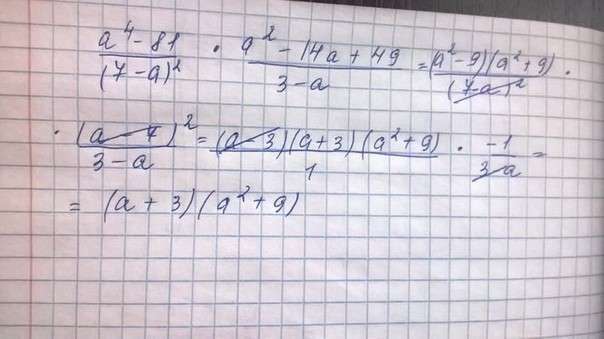 (a⁴ - 81)/(7 - a)² · (a² - 14a + 49)/(3 - a) = (a² - 9)(a² + 9)/(7 - a)² ·
· (a - 7)²/(3 - a) = (a - 3)(a + 3)(a² + 9)/1 · -1/(3 - a) =
= (a + 3)(a² + 9)